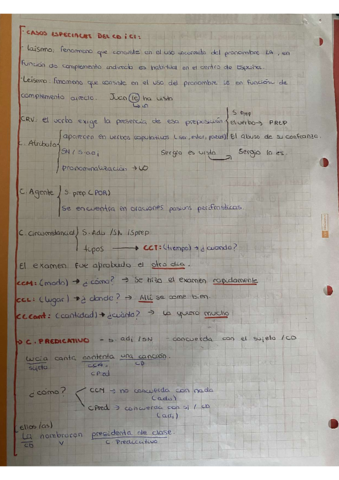 CASOS ESPECIALES DEL CD / CI:
· Laísmo: fenómeno que consiste en el uso incorrecto del pronombre LA, en
función de complemento indirecto es habitual en el centro de España.
· Leísmo: fenómeno que consiste en el uso del pronombre LE en función de
complemento directo. Juan le ha visto
CRV: el verbo exige la presencia de esa preposición S. Prep
el verbo → PREP
El abusa de su confianza
C. Atributo aparecen en verbos copulativos (ser, estar, parecer)
SN / S-adj, Sergio es listo → Sergio lo es.
Pronominalización → LO
C. Agente S prep (POR)
Se encuentra en oraciones pasivas perifrásticas
C. Circunstancial S-Adv / SN / Sprep
tipos → CCT: (tiempo) → ¿cuándo?
El examen fue aprobado el otro día.
CCM: (modo) → ¿cómo? → Se hizo el examen rapidamente
CCL: (lugar) → ¿dónde? → Allí se come bien
CCcant: (cantidad) → ¿cuánto? → La quiero mucho
· C. PREDICATIVO → S. adj / SN · concuerda con el sujeto / CD
Lucía canta contenta una canción
sujeto CCM CD
CPred
¿cómo? CCM → no concuerda con nada
(adv)
CPred → concuerda con el / CD
(adj)
La nombraron presidenta de clase
CD V C PREDICATIVO